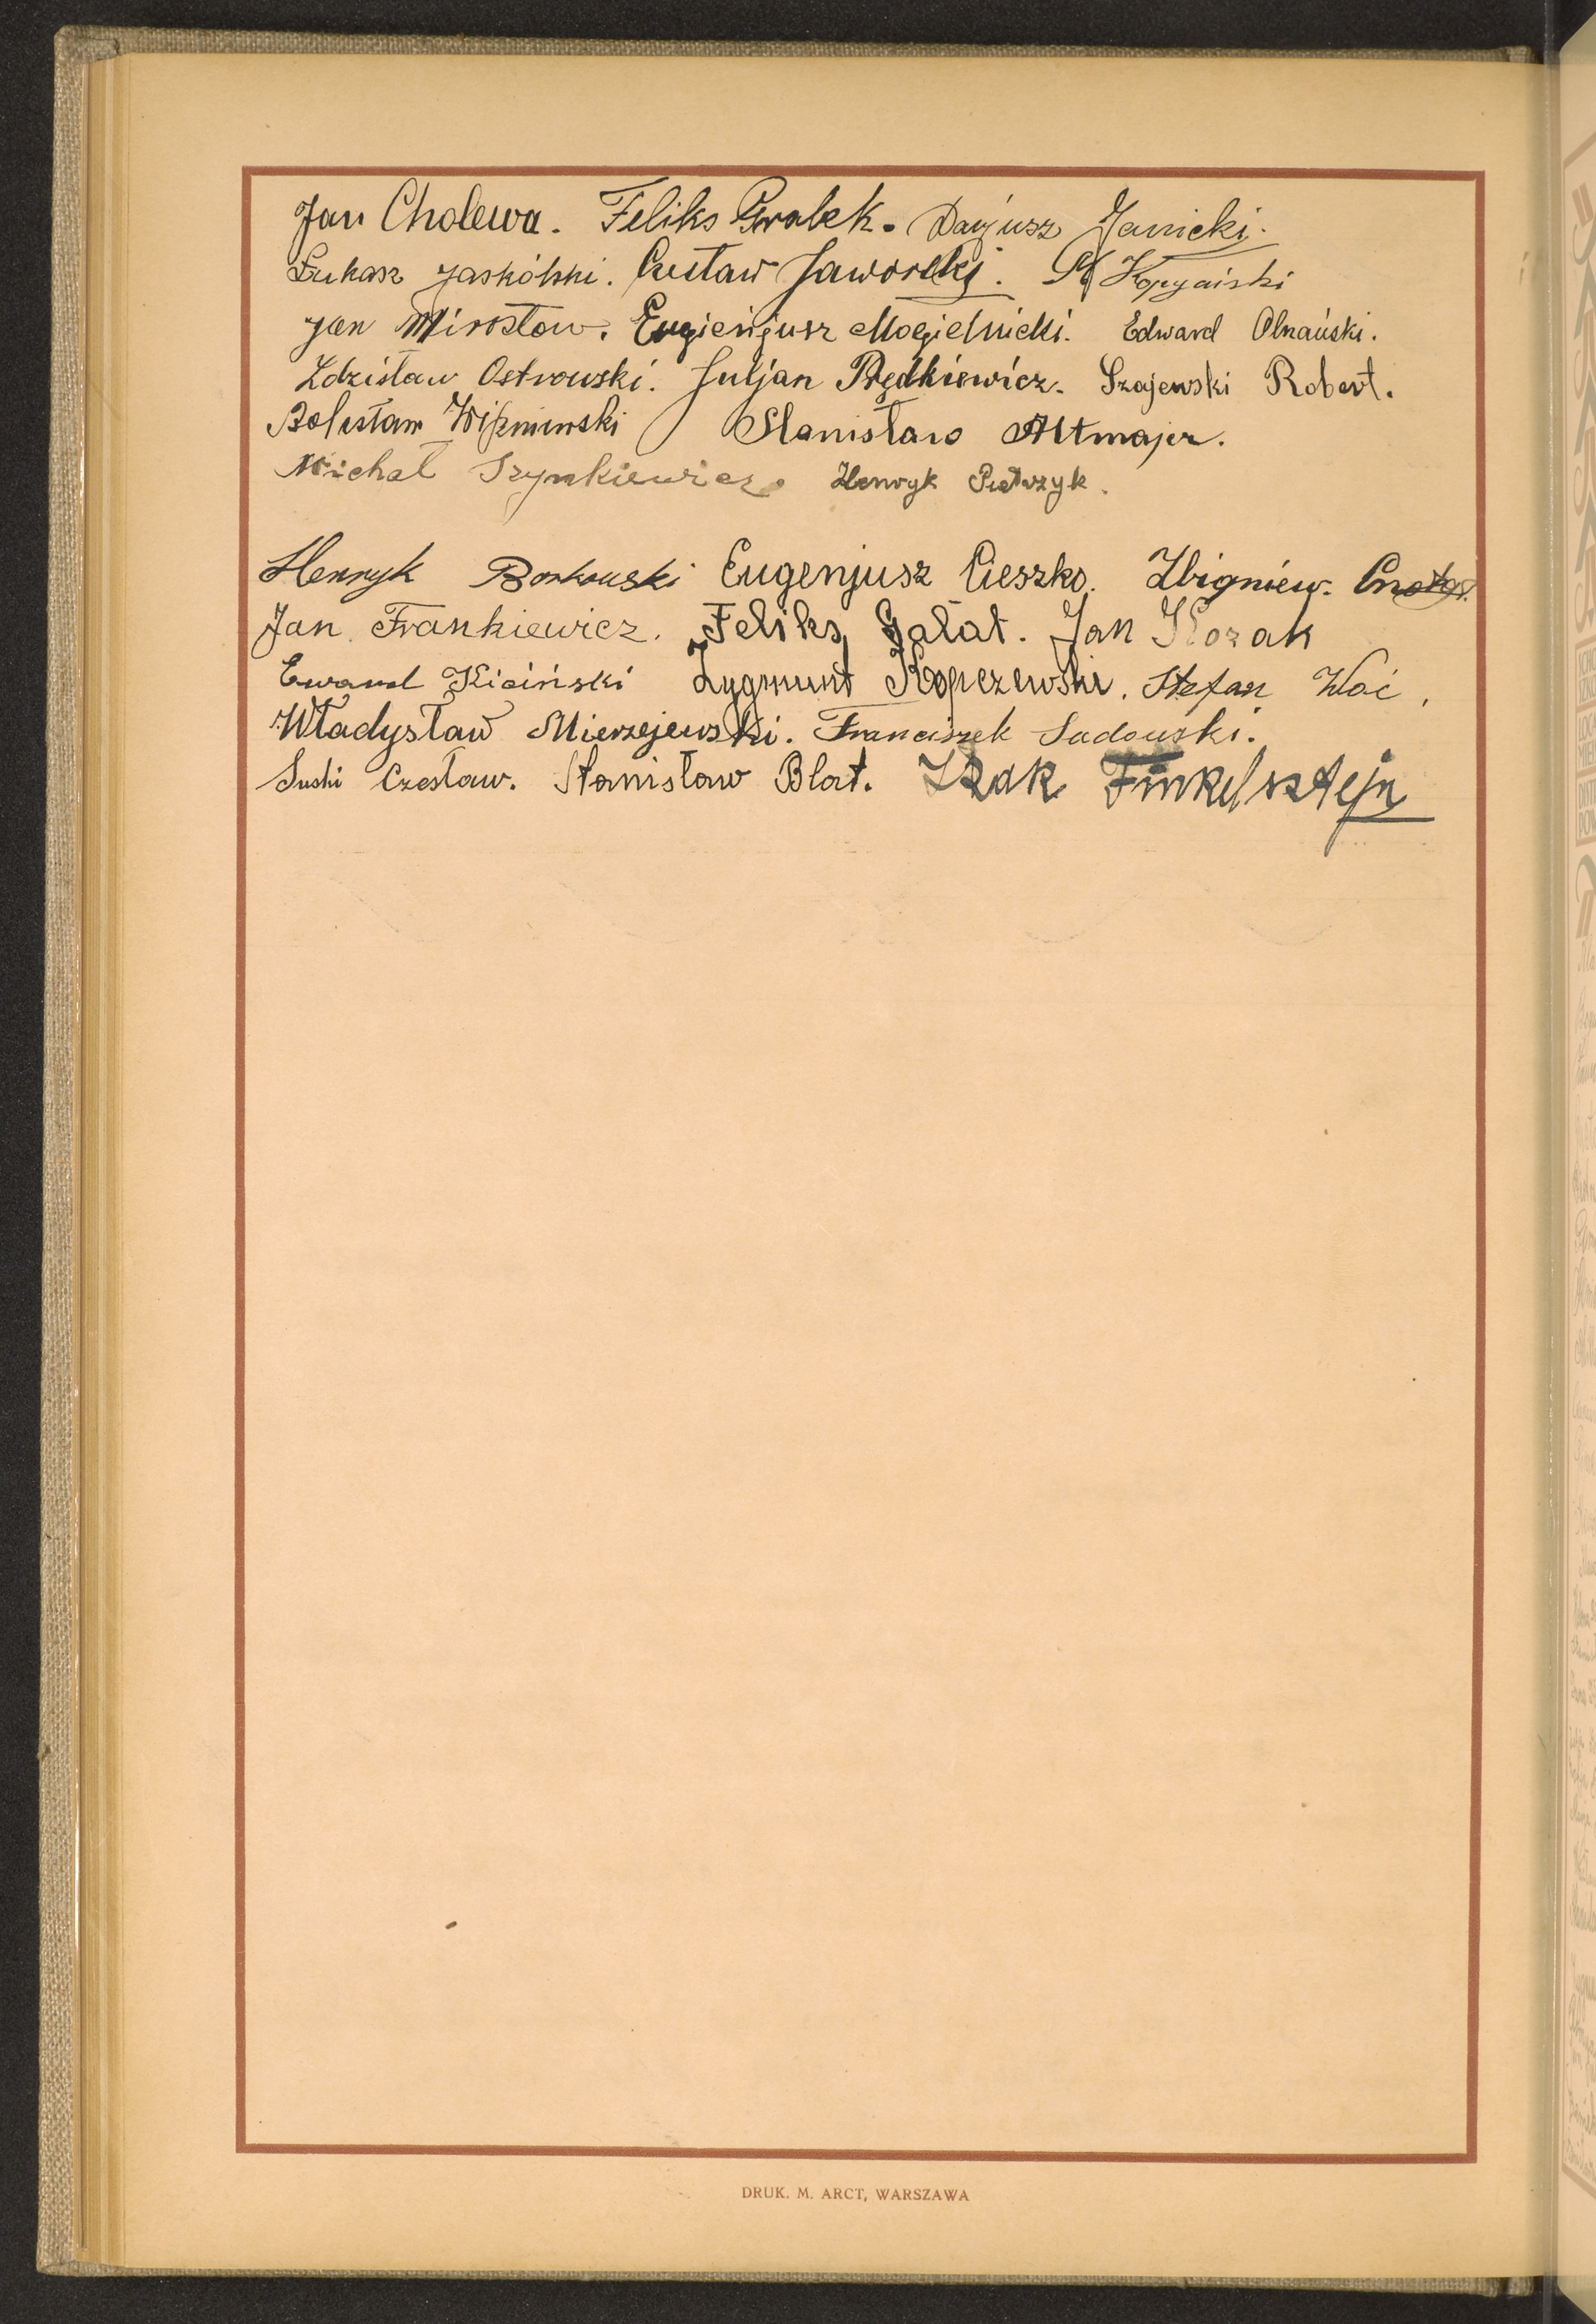 Jan Cholewa. Feliks Grabek. Darjusz Janicki.
Łukasz Jaskólski. Gustaw Jaworski.
Jan Mirosław. Eugienjusz Mogielnicki. Edward Olnański.
Zdzisław Ostrowski. Juljan Rędkiewicz. Szajewski Robert.
Bolesław Wiśniewski Stanisław Altmajer.
Michał Szymkiewicz. Henryk Pietrzyk.
Henryk Borkowski Eugenjusz Cieszko. Zbigniew.
Jan Frankiewicz. Feliks Gałat. Jan Kozak
Edward Kiciński Zygmunt Kopczewski. Stefan
Władysław Mierzejewski. Franciszek Sadowski.
Suski Czesław. Stanisław Blat. Izak Finkelsztejn
DRUK. M. ARCT, WARSZAWA